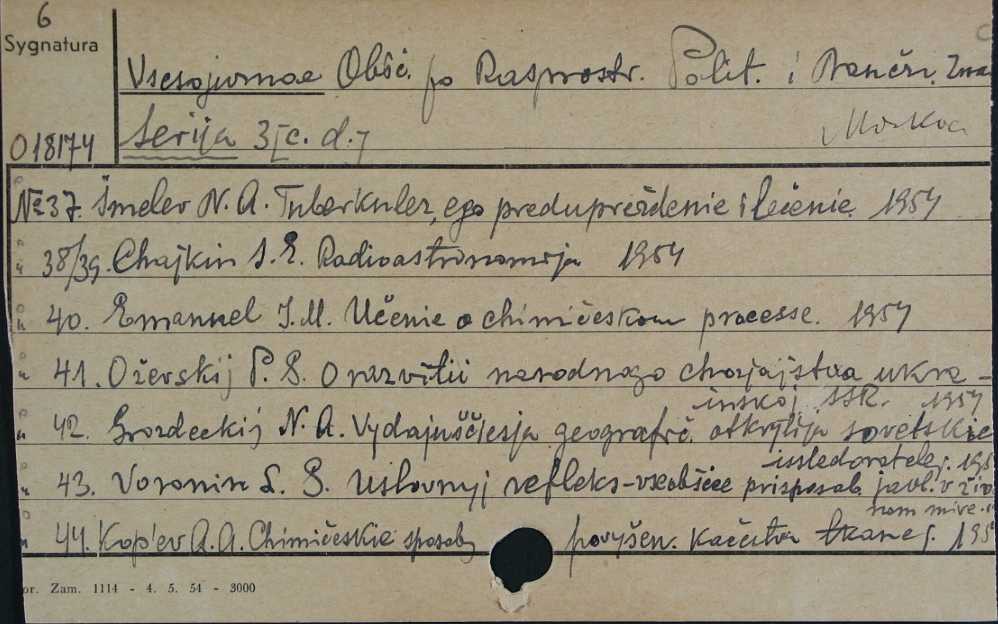 6
Sygnatura
Vsesojuznoe Obšč. po Rasprostr. Polit. i Naučn. Zna
018174
Serija 3 [c. d.] Moskva
№ 37. Šmelev N. A. Tuberkulez, ego predupreždenie i lečenie. 1954
" 38/39. Chajkin S. E. Radioastronomija 1954
" 40. Emanuel I. M. Učenie o chimičeskom processe. 1954
" 41. Oževskij P. S. O razvitii narodnogo chozjajstva ukra-
inskoj SSR. 1954
" 42. Gvozdeckij N. A. Vydajuščiesja geografič. otkrytija sovetskich
issledovatelej. 195
" 43. Voronin L. G. Uslovnyj refleks - vseobščee prisposob. javl. v živ
nom mire.
" 44. Kop'ev A. A. Chimičeskie sposoby povyšen. kačestva tkanej. 195
or. Zam. 1114 - 4. 5. 54 - 3000